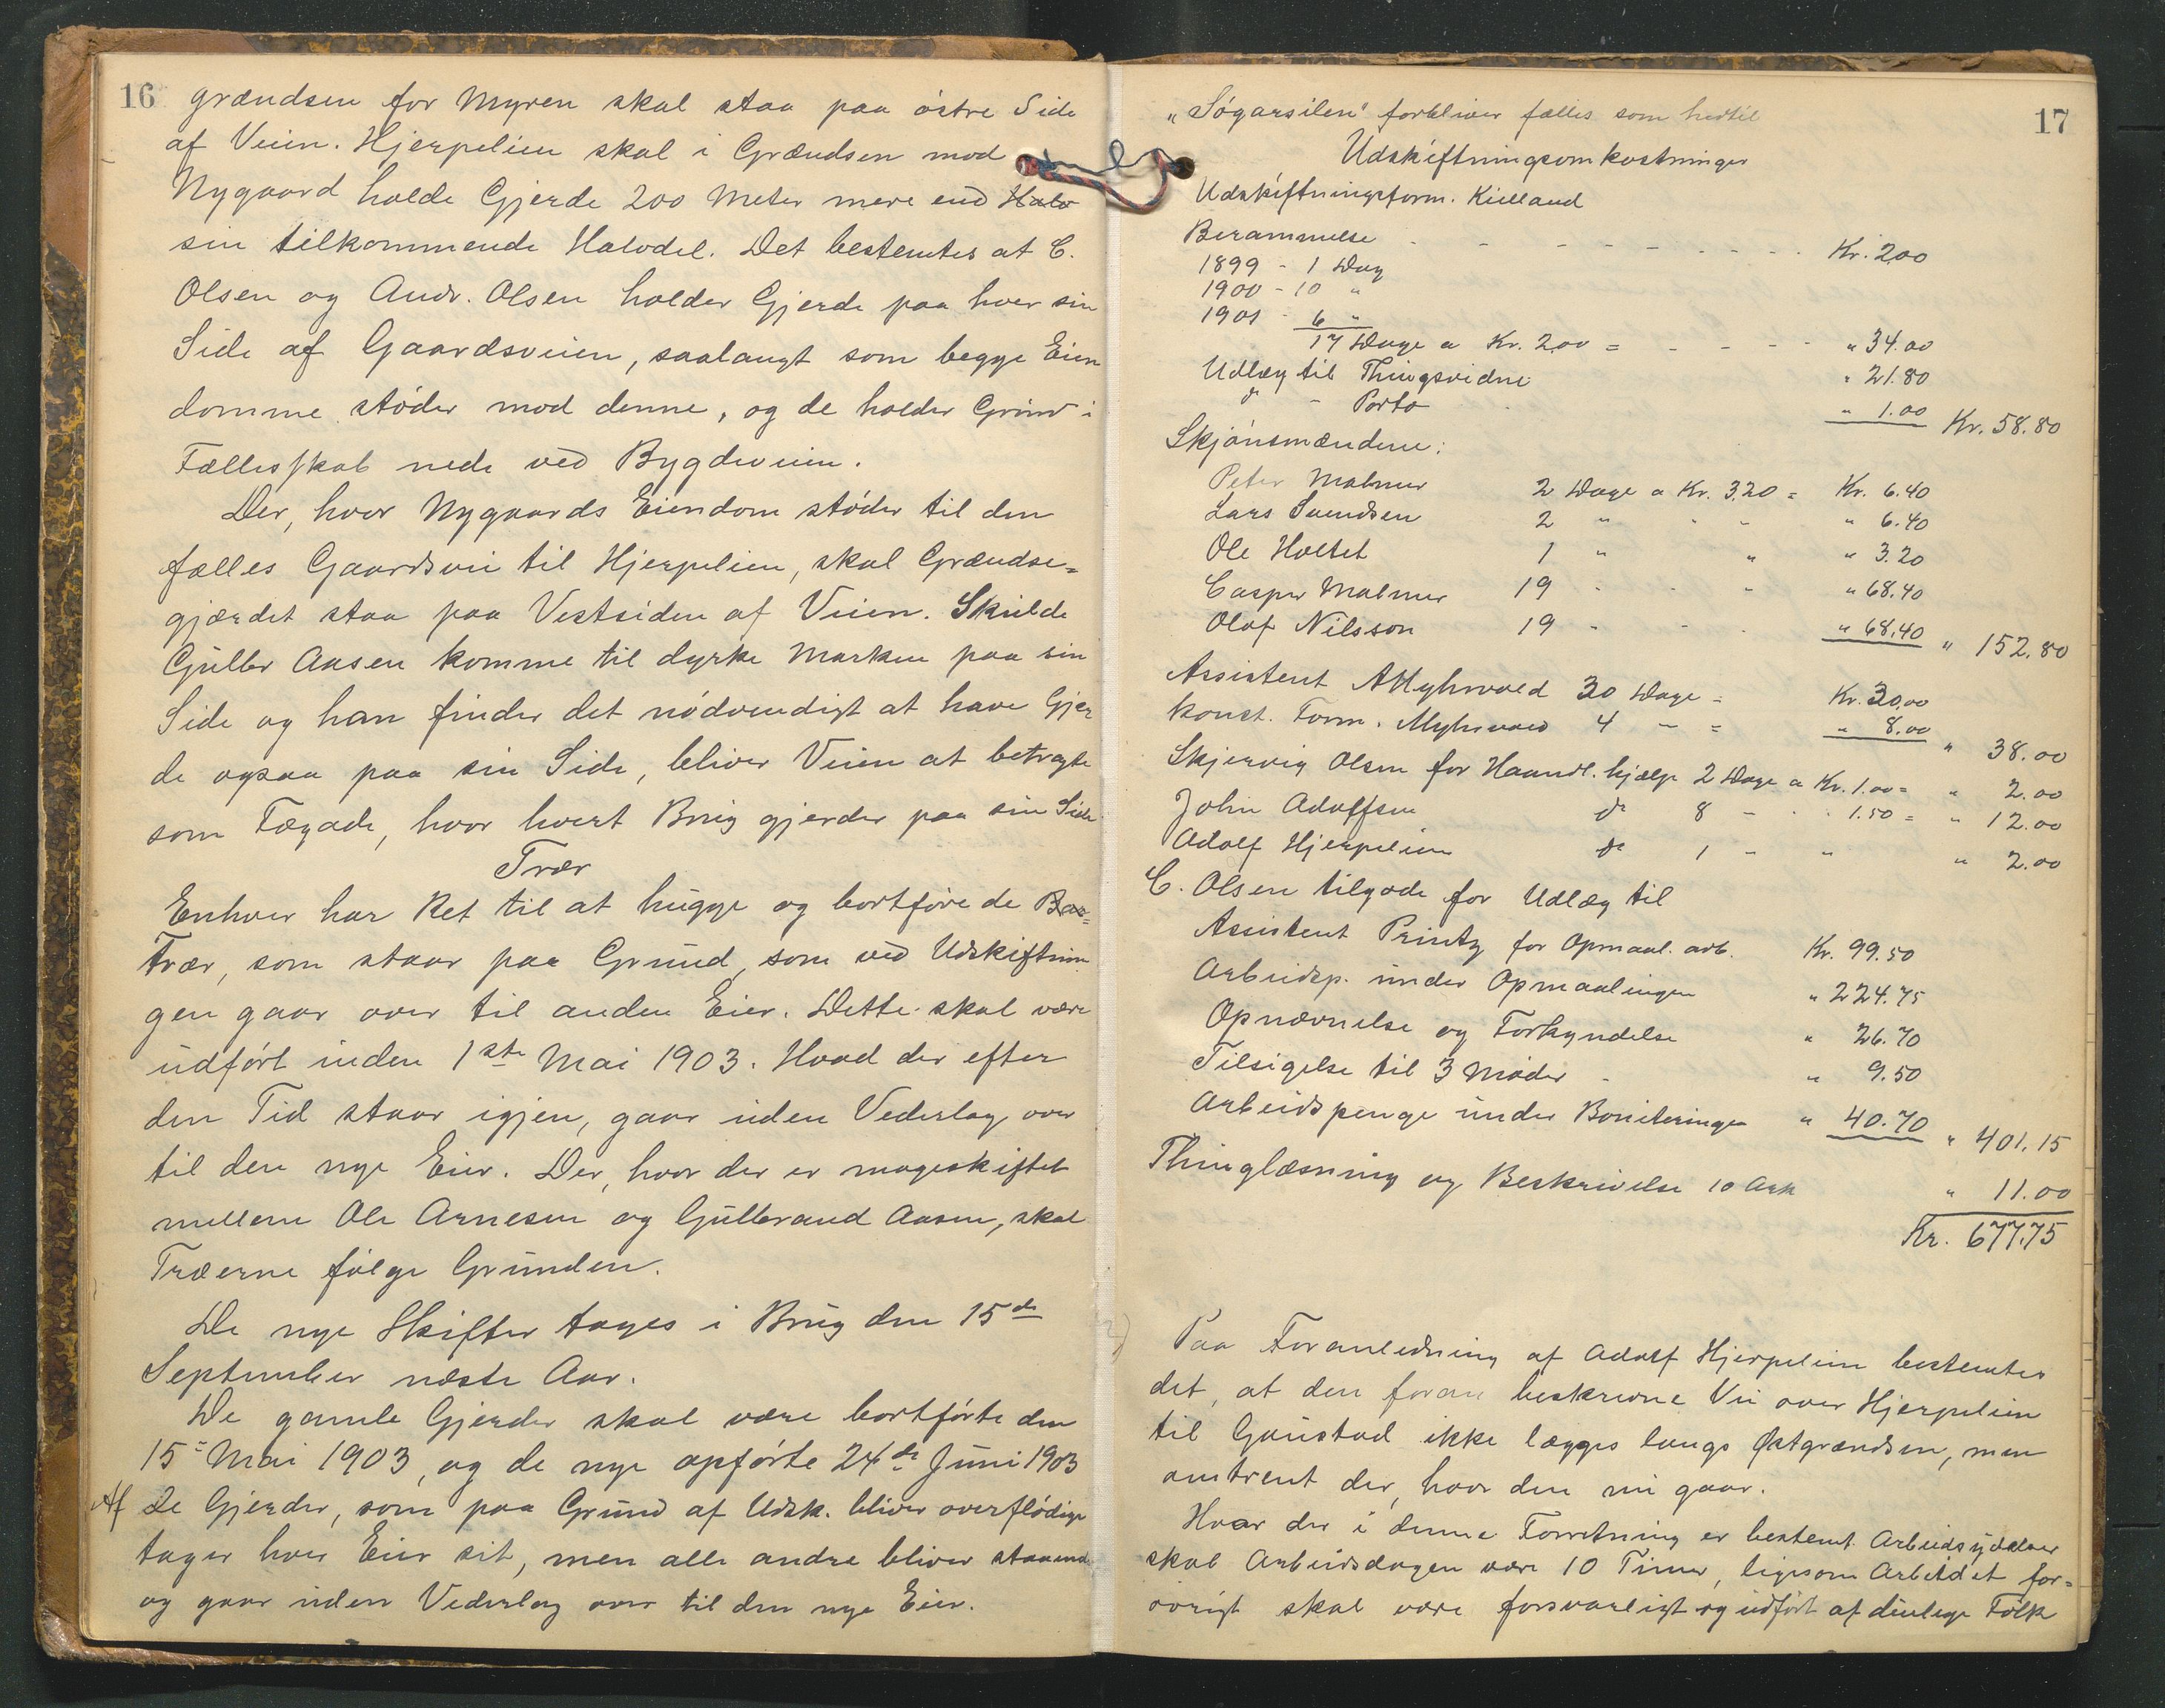 16
grændsen for Myren skal staa paa østre Side
af Veien. Hjerpelien skal i Grændsen mod
Nygaard holde Gjerde 200 Meter mere end Halv
sin tilkommende Halvdel. Det bestemtes at C.
Olsen og Andr. Olsen holder Gjerde paa hver sin
Side af Gaardsveien, saalangt som begge Eien
domme støder mod denne, og de holder Grind i
Fællesskab nede ved Bygdeveien.
Der, hvor Nygaards Eiendom støder til den
fælles Gaardsvei til Hjerpelien, skal Grændse=
gjærdet staa paa Vestsiden af Veien. Skulde
Gulbr Aasen komme til dyrke Marken paa sin
Side og han finder det nødvendigt at have Gjer
de ogsaa paa sin Side, bliver Veien at betragte
som Fægade, hvor hvert Brug gjerder paa sin Side
Trær
Enhver har Ret til at hugge og bortføre de Bar=
trær, som staar paa Grund, som ved Udskiftnin
gen gaar over til anden Eier. Dette skal være
udført inden 1ste Mai 1903. Hvad der efter
den Tid staar igjen, gaar uden Vederlag over
til den nye Eier. Der, hvor der er mageskiftet
mellem Ole Arnesen og Gulbrand Aasen, skal
Træerne følge Grunden.
De nye Skifter tages i Brug den 15de
September næste Aar.
De gamle Gjerder skal være bortførte den
15 Mai 1903, og de nye opførte 24de Juni 1903
Af De Gjerder, som paa Grund af Udsk. bliver overflødige
tager hver Eier sit, men alle andre bliver staaende
og gaar uden Vederlag over til den nye Eier.
17
"Søgarsilen" forbliver fælles som hertil
Udskiftningsomkostninger
Udskiftningsform. Kielland
Berammelse - - - - - - - - Kr. 2,00
1899 - 1 Dag
1900 - 10 "
1901 - 6 "
17 Dage a Kr. 2,00 = - - - - " 34.00
Udlæg til Thingsvidne " 21.80
do - Porto " 1.00 Kr. 58.80
Skjønsmændene:
Peter Malmer 2 Dage a Kr. 3,20 = Kr. 6.40
Lars Svendsen 2 " " - " 6.40
Ole Holtet 1 " " " 3.20
Casper Malmer 19 - - " " 68,40
Olof Nilsson 19 - - - " 68,40 " 152.80
Assistent AMyhrvold 30 Dage = Kr. 30,00
konst. Form. Myhrvold 4 - = " 8.00 " 38.00
Skjervig Olsen for Haandl. hjælp 2 Dage a Kr. 1.00 = " 2.00
John Adolfsen do 8 - - 1.50 = " 12.00
Adolf Hjerpelien do 1 - " " 2.00
C. Olsen tilgode for Udlæg til
Assistent Printz for Opmaal. arb. Kr. 99.50
Arbeidsp. under Opmaalingen " 224.75
Opnævnelse og Forkyndelse " 26.70
Tilsigelse til 3 Møder - " 9.50
Arbeidspenge under Boniteringen " 40.70 " 401.15
Thinglæsning og Beskrivelse 10 Ark " 11.00
Kr. 677,75
Paa Foranledning af Adolf Hjerpelien bestemtes
det, at den foran beskrevne Vei over Hjerpelien
til Gaustad ikke lægges langs Østgrændsen, men
omtrent der, hvor den nu gaar.
Hvor der i denne Forretning er bestemt Arbeidsydelser
skal Arbeidsdagen være 10 Timer, ligesom Arbeidet for=
øvrigt skal være forsvarligt og udført af duelige Folk